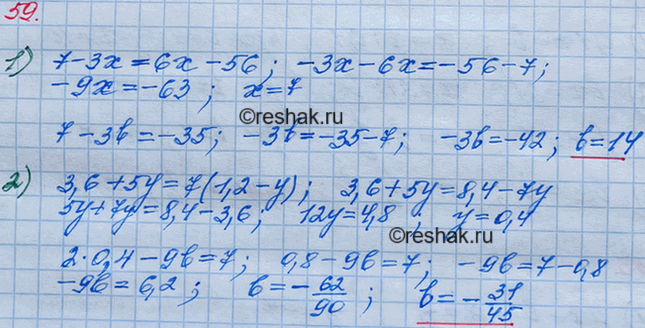 59.
1) 7-3x=6x-56; -3x-6x=-56-7;
-9x=-63; x=7
©reshak.ru
7-3b=-35; -3b=-35-7; -3b=-42; b=14
2) 3,6+5y=7(1,2-y); 3,6+5y=8,4-7y
5y+7y=8,4-3,6; 12y=4,8; y=0,4
©reshak.ru
2·0,4-9b=7; 0,8-9b=7; -9b=7-0,8
-9b=6,2; b=-62/90; b=-31/45